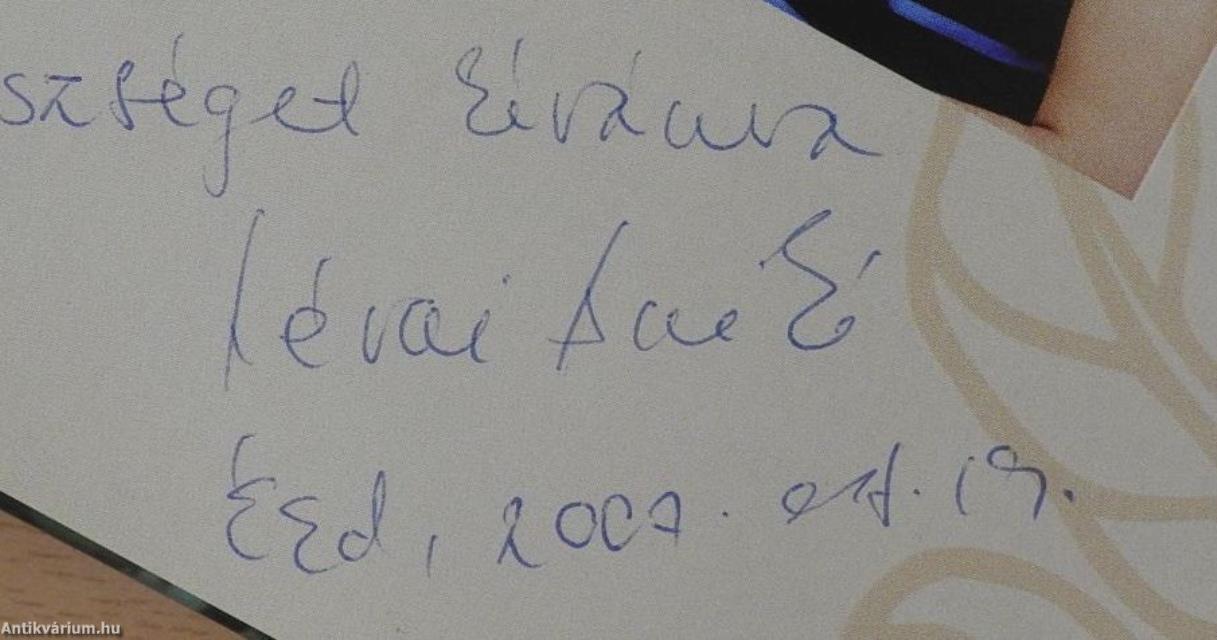 szséget kívánva
Lévai
Érd, 2007. okt. 19.
Antikvárium.hu